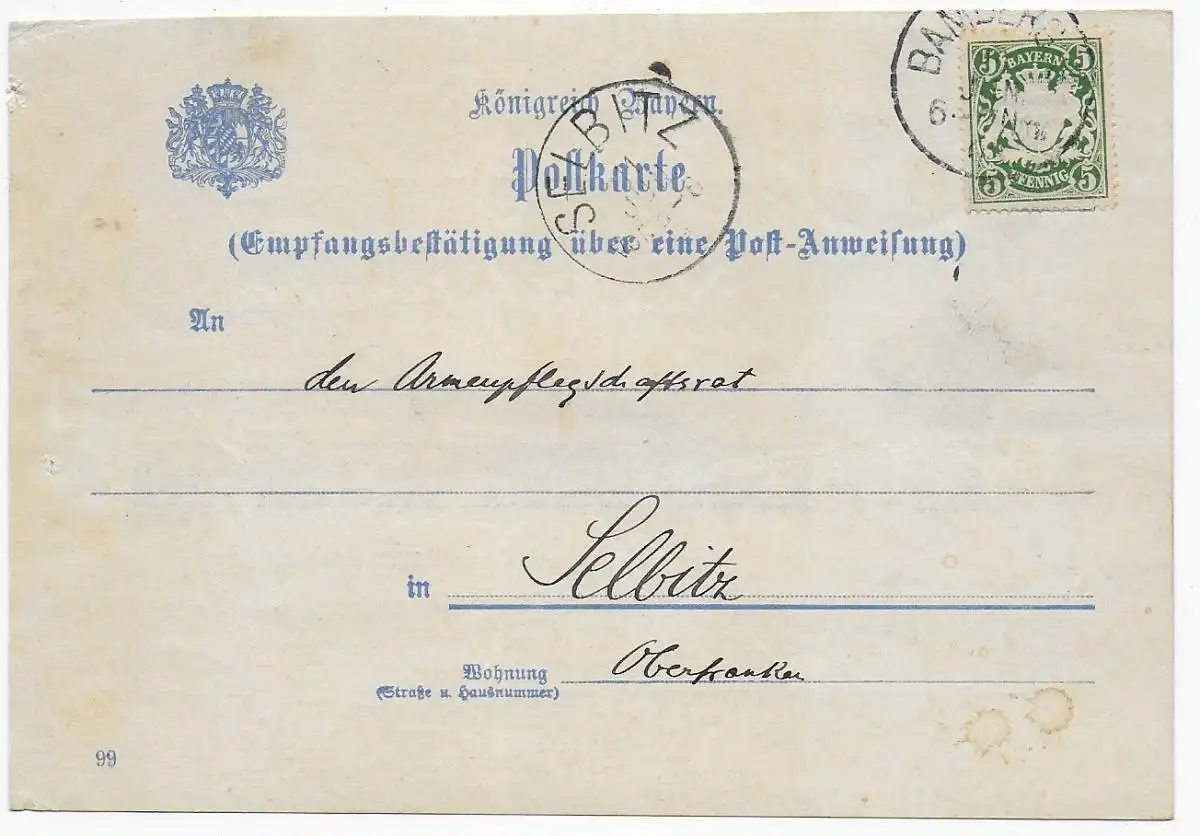 BAMBERG
6
BAYERN
5 5
5 PFENNIG 5
Königreich Bayern.
SELBITZ
Postkarte
(Empfangsbestätigung über eine Post-Anweisung)
An
den Armenpflegschaftsrat
in Selbitz
Wohnung Oberfranken
(Straße u. Hausnummer)
99